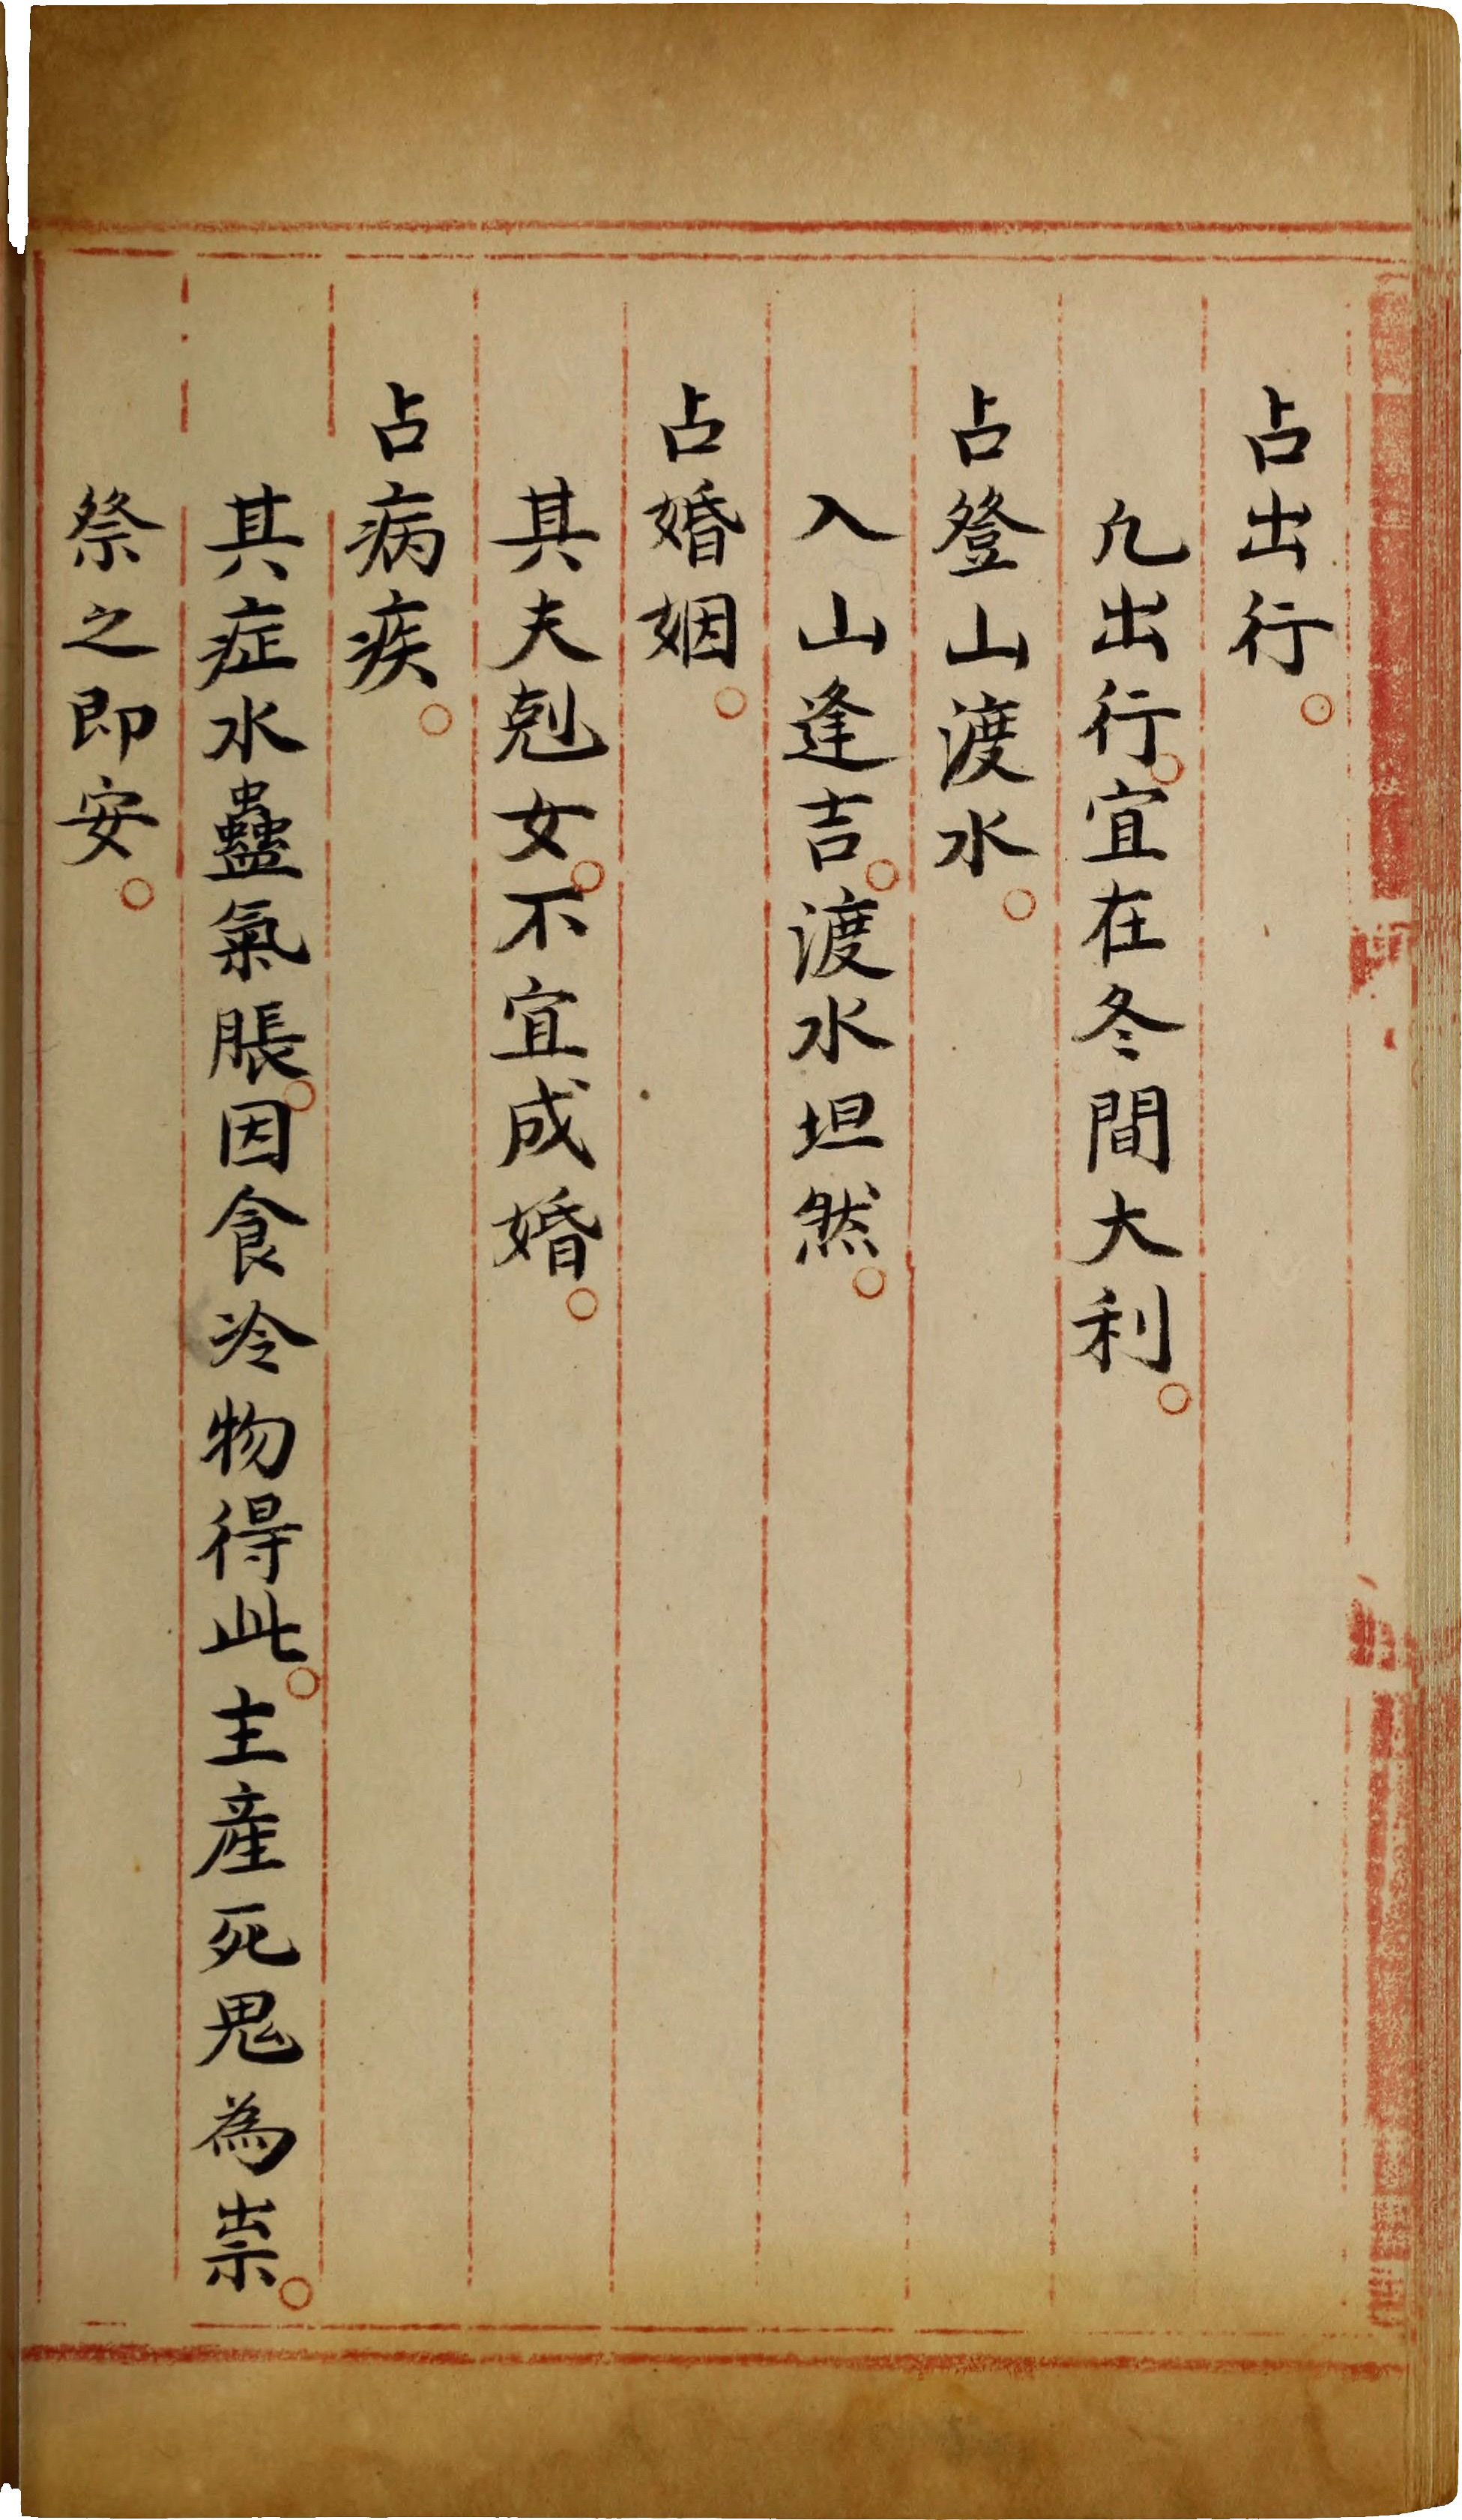 占出行。
凢出行。宜在冬間大利。
占登山渡水。
入山逢吉。渡水坦然。
占婚姻。
其夫剋女。不宜成婚。
占病疾。
其症水蠱氣脹。因食冷物得此。主產死鬼為祟。
祭之即安。